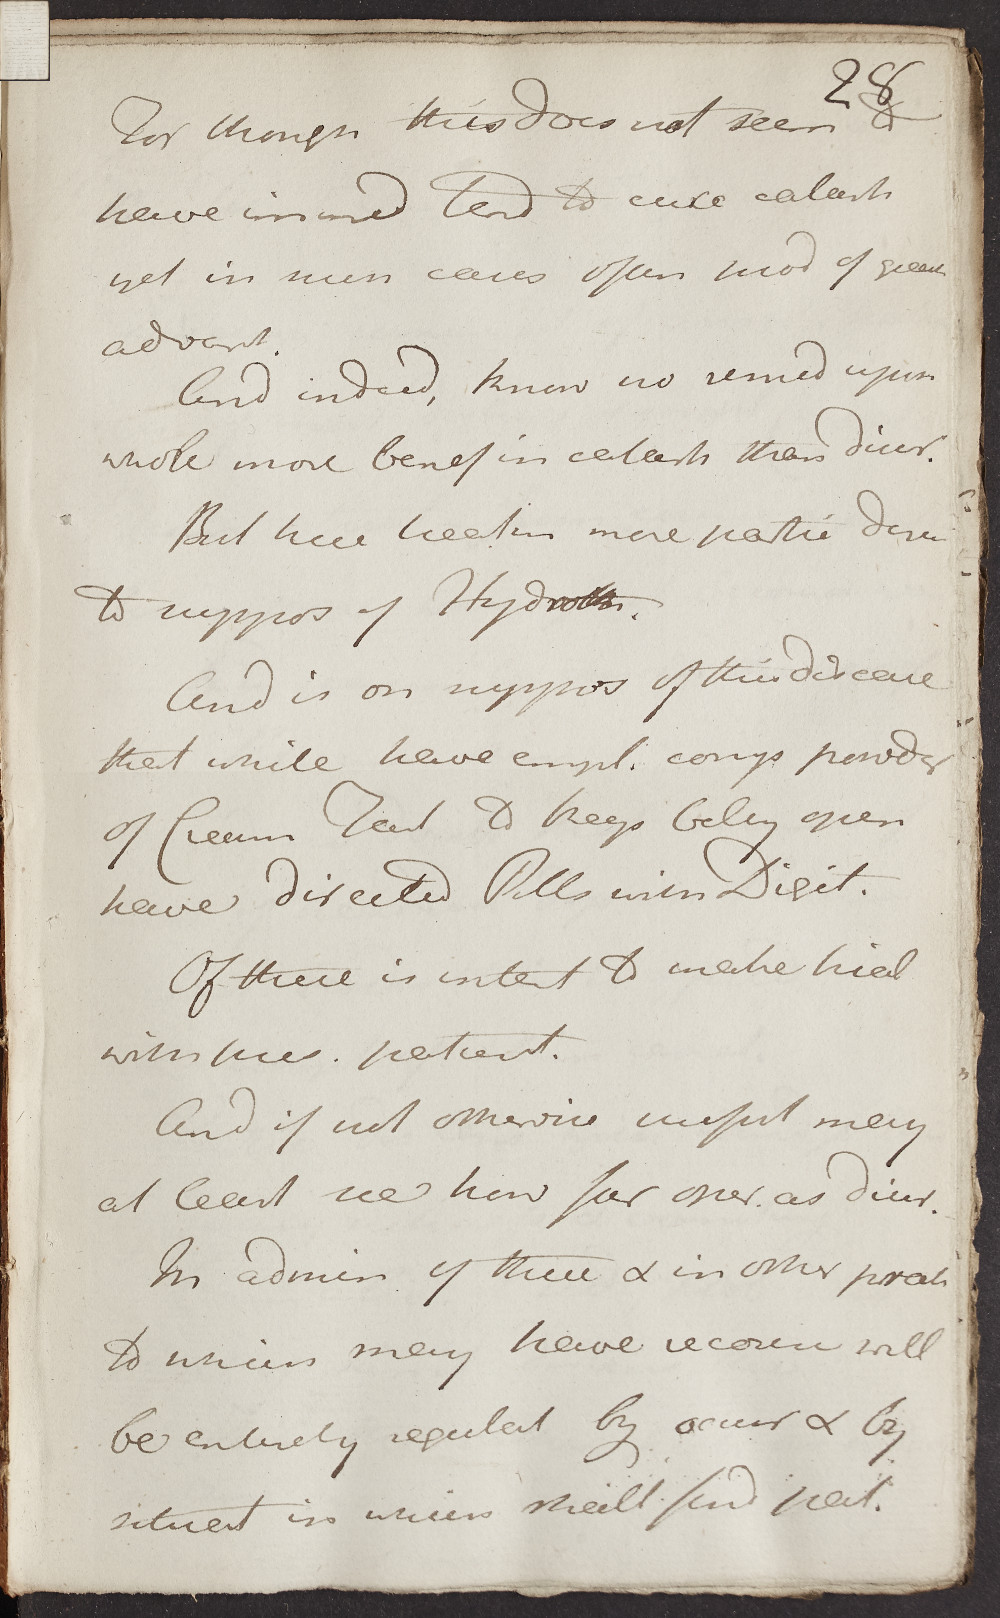 28
For though this does not seem to
have immed Tend to cure catarh
yet in som cases often prod of great
advant.
And indeed, know no remed upon
whole more benef in catarh than diur.
But here hectin more partic derm
to suppos of Hydroth.
And is on suppos of this disease
that while have empl. comp powder
of Cream Tart to keep belly open
have directed Pills with Digit.
Of these is intent to make trial
with pres. patient.
And if not otherwise usefut may
at least see how far oper. as diur.
In admin of these & in other pract
to which may have recours will
be entirely regulat by occur & by
situat in which shall find pat.